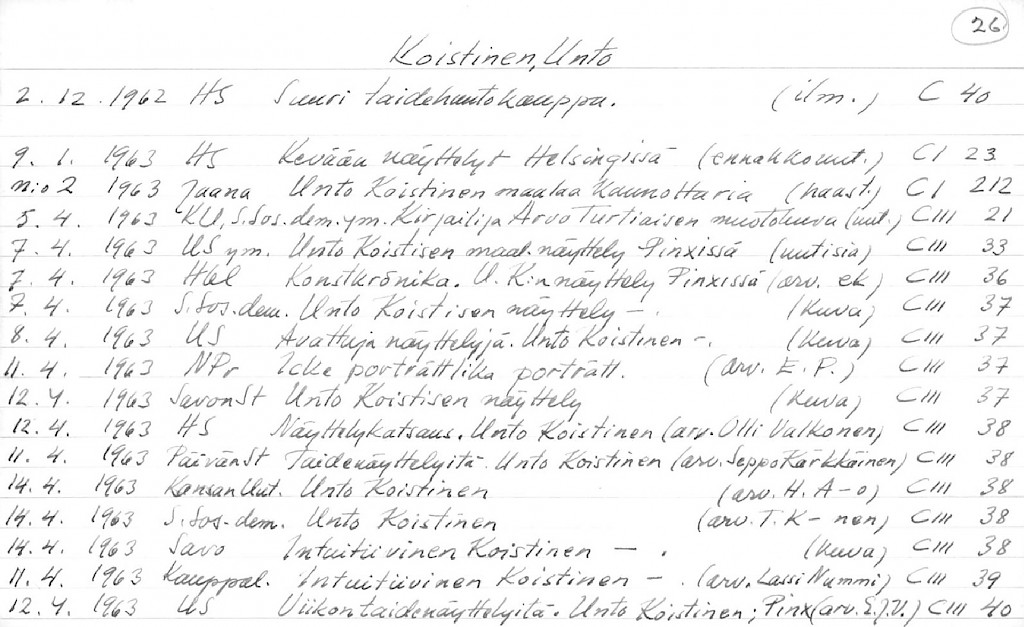 26
Koistinen, Unto
2. 12. 1962 HS Suuri taidehuutokauppa. (ilm.) C 40
9. 1. 1963 HS Kevään näyttelyt Helsingissä (ennakkouut.) CI 23
n:o 2 1963 Jaana Unto Koistinen maalaa kaunottaria (haast.) CI 212
5. 4. 1963 KU, S.Sos.dem. ym. Kirjailija Arvo Turtiaisen muotokuva (uut.) CIII 21
7. 4. 1963 US ym. Unto Koistisen maal. näyttely Pinxissä (uutisia) CIII 33
7. 4 1963 Hbl Konstkrönika. U. K:n näyttely Pinxissä (arv. ek) CIII 36
7. 4. 1963 S.Sos.dem. Unto Koistisen näyttely - . (kuva) CIII 37
8. 4. 1963 US Avattuja näyttelyjä. Unto Koistinen -. (kuva) CIII 37
11. 4. 1963 NPr Icke porträttlika porträtt. (arv. E. P.) CIII 37
12. 4. 1963 SavonSt Unto Koistisen näyttely (kuva) CIII 37
12. 4. 1963 HS Näyttelykatsaus. Unto Koistinen (arv. Olli Valkonen) CIII 38
11. 4. 1963 PäivänSt Taidenäyttelyitä. Unto Koistinen (arv. Seppo Kärkkäinen) CIII 38
14. 4. 1963 KansanUut. Unto Koistinen (arv. H. A-o) CIII 38
14. 4. 1963 S.Sos-dem. Unto Koistinen (arv. T. K- nen) CIII 38
14. 4. 1963 Savo Intuitiivinen Koistinen - . (kuva) CIII 38
11. 4. 1963 Kauppal. Intuitiivinen Koistinen - . (arv. Lassi Nummi) CIII 39
12. 4. 1963 US Viikon taidenäyttelyitä. Unto Koistinen; Pinx (arv. E.J.V.) CIII 40